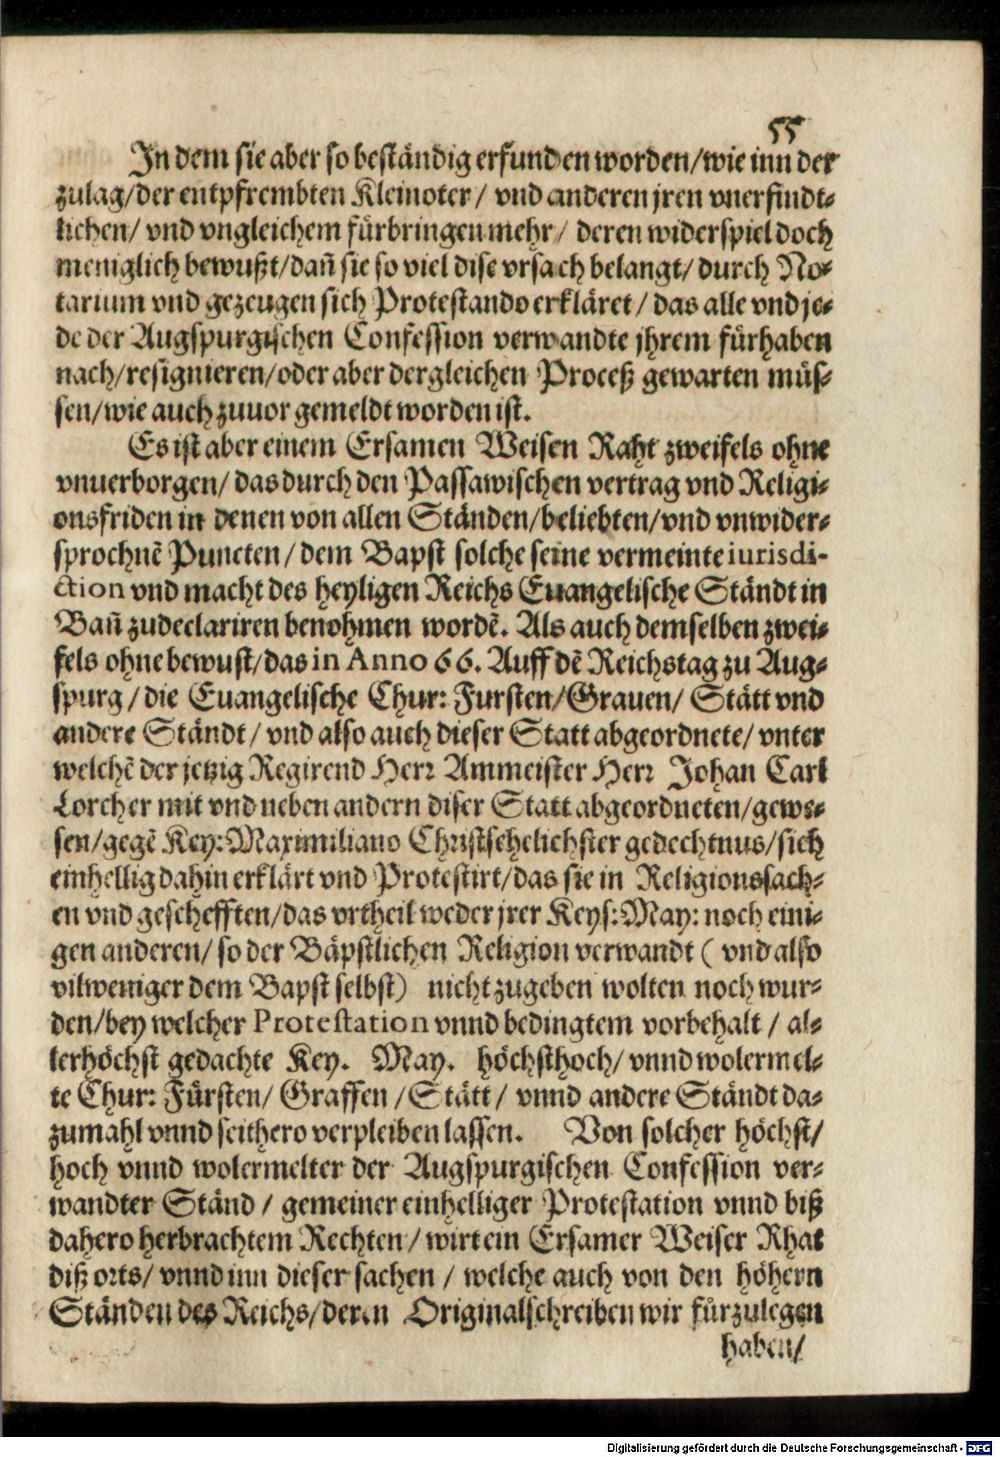 55
In dem sie aber so beständig erfunden worden/wie inn der
zulag/der entpfrembten Kleinoter/ vnd anderen jren vnerfindt-
lichen/ vnd vngleichem fürbringen mehr/ deren widerspiel doch
meniglich bewußt/dañ sie so viel dise vrsach belangt/ durch No-
tarium vnd gezeugen sich Protestando erkläret/ das alle vnd je-
de der Augspurgischen Confession verwandte jhrem fürhaben
nach/resignieren/oder aber dergleichen Proceß gewarten müs-
sen/wie auch zuuor gemeldt worden ist.
Es ist aber einem Ersamen Weisen Raht zweifels ohne
vnuerborgen/ das durch den Passawischen vertrag vnd Religi-
onsfriden in denen von allen Ständen/beliebten/vnd vnwider-
sprochnẽ Puncten/ dem Bapst solche seine vermeinte iurisdi-
ction vnd macht des heyligen Reichs Euangelische Ständt in
Bañ zudeclariren benohmen wordẽ. Als auch demselben zwei-
fels ohne bewust/das in Anno 66. Auff dẽ Reichstag zu Aug-
spurg/die Euangelische Chur: Fursten/Grauen/ Stätt vnd
andere Ständt/ vnd also auch dieser Statt abgeordnete/ vnter
welchẽ der jetzig Regirend Herr Ammeister Herr Johan Carl
Lorcher mit vnd neben andern diser Statt abgeordneten/gewe-
sen/gegẽ Key: Maximiliano Christsehelichster gedechtnus/sich
einhellig dahin erklärt vnd Protestirt/das sie in Religionssach-
en vnd geschefften/das vrtheil weder jrer Keys: May: noch eini-
gen anderen/ so der Bäpstlichen Religion verwandt ( vnd also
vilweniger dem Bapst selbst) nicht zugeben wolten noch wur-
den/bey welcher Protestation vnnd bedingtem vorbehalt/ al-
lerhöchst gedachte Key. May. höchsthoch/ vnnd wolermel-
te Chur: Fürsten/ Graffen /Stätt/ vnnd andere Ständt da-
zumahl vnnd seithero verpleiben lassen. Von solcher höchst/
hoch vnnd wolermelter der Augspurgischen Confession ver-
wandter Ständ/ gemeiner einhelliger Protestation vnnd biß
dahero herbrachtem Rechten/ wirt ein Ersamer Weiser Rhat
diß orts/ vnnd inn dieser sachen/ welche auch von den höhern
Ständen des Reichs/deren Originalschreiben wir fürzulegen
haben/
Digitalisierung gefördert durch die Deutsche Forschungsgemeinschaft - DFG